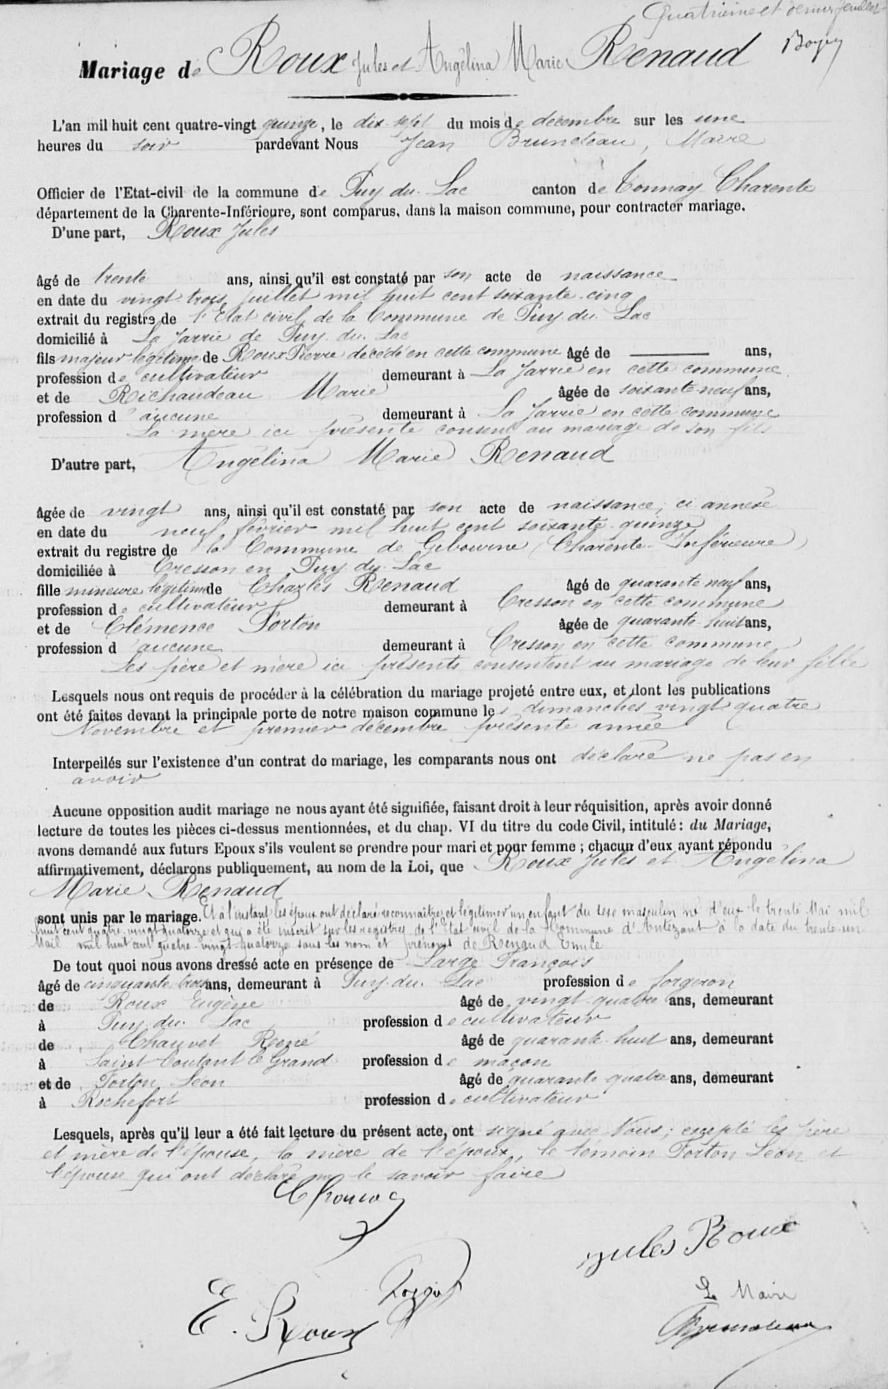 Quatrième et dernier feuillet
Mariage de Roux Jules et Angélina Marie Renaud
L'an mil huit cent quatre-vingt quinze, le dix-sept du mois de décembre sur les une
heures du soir pardevant Nous Jean Bruneteau, Maire
Officier de l'Etat-civil de la commune de Puy du Lac canton de Tonnay Charente
département de la Charente-Inférieure, sont comparus, dans la maison commune, pour contracter mariage.
D'une part, Roux Jules
âgé de trente ans, ainsi qu'il est constaté par son acte de naissance
en date du vingt trois juillet mil huit cent soixante-cinq
extrait du registre de l'Etat civil de la Commune de Puy du Lac
domicilié à La Jarrie de Puy du Lac
fils majeur légitime de Roux Pierre décédé en cette commune âgé de ——— ans,
profession de cultivateur demeurant à La Jarrie en cette commune
et de Richaudeau Marie âgée de soixante-neuf ans,
profession d'aucune demeurant à La Jarrie en cette commune
La mère ici présente consent au mariage de son fils
D'autre part, Angélina Marie Renaud
âgée de vingt ans, ainsi qu'il est constaté par son acte de naissance, ci annexé
en date du neuf février mil huit cent soixante-quinze
extrait du registre de la Commune de Gibourne (Charente-Inférieure)
domiciliée à Cresson en Puy du Lac
fille mineure légitime de Charles Renaud âgé de quarante neuf ans,
profession de cultivateur demeurant à Cresson en cette commune
et de Clémence Forton âgée de quarante huit ans,
profession d'aucune demeurant à Cresson en cette commune
Les père et mère ici présents consentent au mariage de leur fille
Lesquels nous ont requis de procéder à la célébration du mariage projeté entre eux, et dont les publications
ont été faites devant la principale porte de notre maison commune les dimanches vingt quatre
Novembre et premier décembre présente année
Interpellés sur l'existence d'un contrat de mariage, les comparants nous ont déclaré ne pas en
avoir
Aucune opposition audit mariage ne nous ayant été signifiée, faisant droit à leur réquisition, après avoir donné
lecture de toutes les pièces ci-dessus mentionnées, et du chap. VI du titre du code Civil, intitulé : du Mariage,
avons demandé aux futurs Epoux s'ils veulent se prendre pour mari et pour femme ; chacun d'eux ayant répondu
affirmativement, déclarons publiquement, au nom de la Loi, que Roux Jules et Angélina
Marie Renaud
sont unis par le mariage. Et à l'instant les époux ont déclaré reconnaître et légitimer un enfant du sexe masculin né d'eux le trente Mai mil
huit cent quatre-vingt quatorze et qui a été inscrit sur les registres de l'Etat civil de la Commune d'Antezant à la date du trente-un
Mai mil huit cent quatre-vingt-quatorze sous les nom et prénoms de Renaud Emile
De tout quoi nous avons dressé acte en présence de Large François
âgé de cinquante trois ans, demeurant à Puy du Lac profession de forgeron
de Roux Eugène âgé de vingt-quatre ans, demeurant
à Puy du Lac profession de cultivateur
de Chauvet René âgé de quarante-huit ans, demeurant
à Saint Coutant le Grand profession de maçon
et de Forton Léon âgé de quarante quatre ans, demeurant
à Rochefort profession de cultivateur
Lesquels, après qu'il leur a été fait lecture du présent acte, ont signé avec Nous; excepté les père
et mère de l'épouse, la mère de l'époux, le témoin Forton Léon et
l'épouse qui ont déclaré ne le savoir faire
Jules Roux
Le Maire
E. Roux